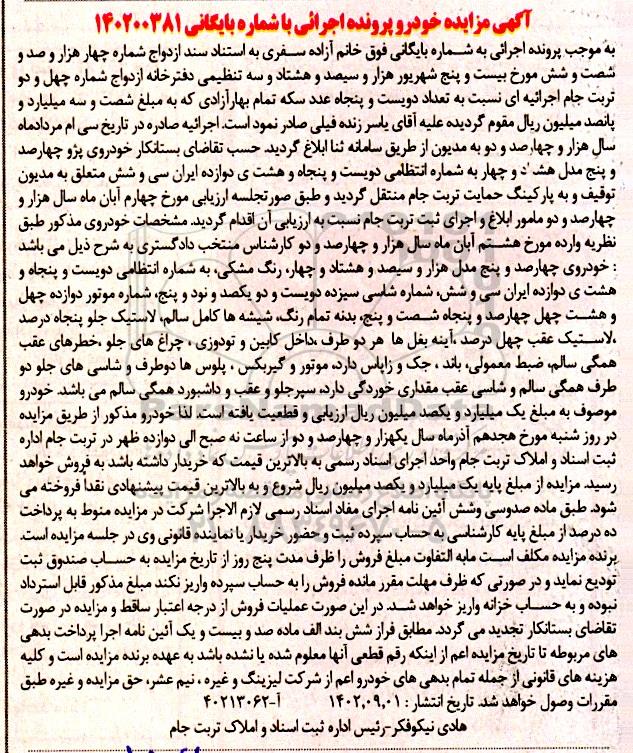 آگهی مزایده خودرو پرونده اجرائی با شماره بایگانی ۱۴۰۲۰۰۳۸۱
به موجب پرونده اجرائی به شماره بایگانی فوق خانم آزاده سفری به استناد سند ازدواج شماره چهار هزار و صد و
شصت و شش مورخ بیست و پنج شهریور هزار و سیصد و هشتاد و سه تنظیمی دفترخانه ازدواج شماره چهل و دو
تربت جام اجرائیه ای نسبت به تعداد دویست و پنجاه عدد سکه تمام بهارآزادی که به مبلغ شصت و سه میلیارد و
پانصد میلیون ریال مقوم گردیده علیه آقای یاسر زنده فیلی صادر نمود است. اجرائیه صادره در تاریخ سی ام مردادماه
سال هزار و چهارصد و دو به مدیون از طریق سامانه ثنا ابلاغ گردید. حسب تقاضای بستانکار خودروی پژو چهارصد
و پنج مدل هشتاد و چهار به شماره انتظامی دویست و پنجاه و هشت ی دوازده ایران سی و شش متعلق به مدیون
توقیف و به پارکینگ حمایت تربت جام منتقل گردید و طبق صورتجلسه ارزیابی مورخ چهارم آبان ماه سال هزار و
چهارصد و دو مامور ابلاغ و اجرای ثبت تربت جام نسبت به ارزیابی آن اقدام گردید. مشخصات خودروی مذکور طبق
نظریه وارده مورخ هشتم آبان ماه سال هزار و چهارصد و دو کارشناس منتخب دادگستری به شرح ذیل می باشد
: خودروی چهارصد و پنج مدل هزار و سیصد و هشتاد و چهار، رنگ مشکی، به شماره انتظامی دویست و پنجاه و
هشت ی دوازده ایران سی و شش، شماره شاسی سیزده دویست و دو یکصد و نود و پنج، شماره موتور دوازده چهل
و هشت چهل چهارصد و پنجاه شصت و پنج، بدنه تمام رنگ، شیشه ها کامل سالم، لاستیک جلو پنجاه درصد
،لاستیک عقب چهل درصد ،آینه بغل ها هر دو طرف ،داخل کابین و تودوزی ، چراغ های جلو ،خطرهای عقب
همگی سالم، ضبط معمولی، باند ، جک و زاپاس دارد، موتور و گیربکس ، پلوس ها دوطرف و شاسی های جلو دو
طرف همگی سالم و شاسی عقب مقداری خوردگی دارد، سپرجلو و عقب و داشبورد همگی سالم می باشد. خودرو
موصوف به مبلغ یک میلیارد و یکصد میلیون ریال ارزیابی و قطعیت یافته است. لذا خودرو مذکور از طریق مزایده
در روز شنبه مورخ هجدهم آذرماه سال یکهزار و چهارصد و دو از ساعت نه صبح الی دوازده ظهر در تربت جام اداره
ثبت اسناد و املاک تربت جام واحد اجرای اسناد رسمی به بالاترین قیمت که خریدار داشته باشد به فروش خواهد
رسید. مزایده از مبلغ پایه یک میلیارد و یکصد میلیون ریال شروع و به بالاترین قیمت پیشنهادی نقدا فروخته می
شود. طبق ماده صدوسی وشش آئین نامه اجرای مفاد اسناد رسمی لازم الاجرا شرکت در مزایده منوط به پرداخت
ده درصد از مبلغ پایه کارشناسی به حساب سپرده ثبت و حضور خریدار یا نماینده قانونی وی در جلسه مزایده است.
برنده مزایده مکلف است مابه التفاوت مبلغ فروش را ظرف مدت پنج روز از تاریخ مزایده به حساب صندوق ثبت
تودیع نماید و در صورتی که ظرف مهلت مقرر مانده فروش را به حساب سپرده واریز نکند مبلغ مذکور قابل استرداد
نبوده و به حساب خزانه واریز خواهد شد. در این صورت عملیات فروش از درجه اعتبار ساقط و مزایده در صورت
تقاضای بستانکار تجدید می گردد. مطابق فراز شش بند الف ماده صد و بیست و یک آئین نامه اجرا پرداخت بدهی
های مربوطه تا تاریخ مزایده اعم از اینکه رقم قطعی آنها معلوم شده یا نشده باشد به عهده برنده مزایده است و کلیه
هزینه های قانونی از جمله تمام بدهی های خودرو اعم از شرکت لیزینگ و غیره ، نیم عشر، حق مزایده و غیره طبق
مقررات وصول خواهد شد. تاریخ انتشار : ۱۴۰۲.۰۹.۰۱ آ-۴۰۲۱۳۰۶۲
هادی نیکوفکر-رئیس اداره ثبت اسناد و املاک تربت جام